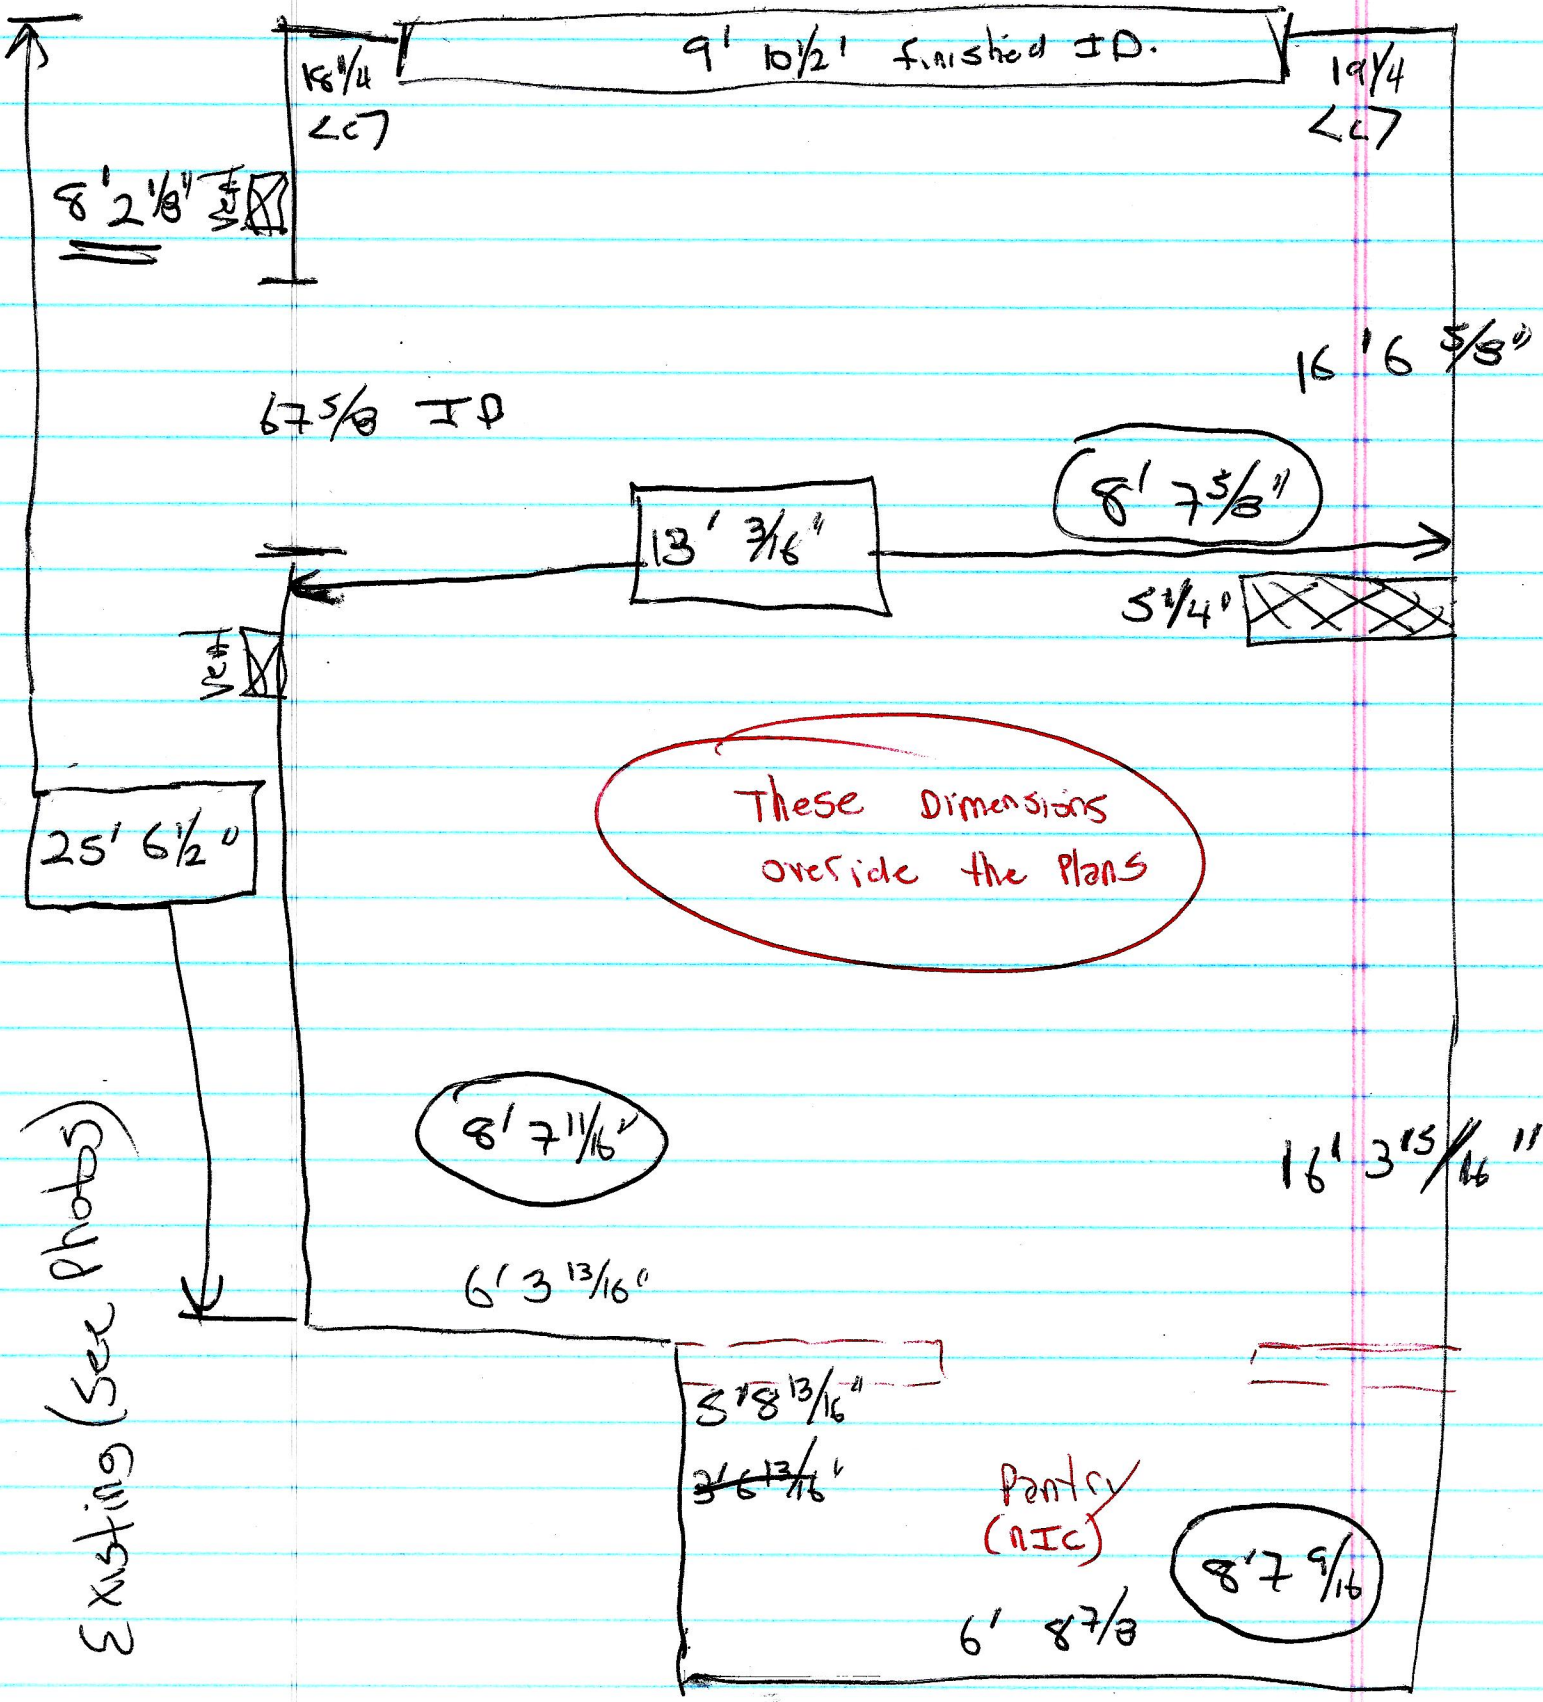 18 1/4
9' 10 1/2' finished ID.
19 1/4
<c>
<c>
8' 2 1/8"
Vent
16' 6 5/8"
67 5/8 ID
8' 7 5/8"
13' 3/16"
5 1/4"
Vent
These Dimensions
override the Plans
25' 6 1/2"
8' 7 11/16"
16' 3 15/16"
6' 3 13/16"
5' 8 13/16"
3' 6 13/16"
Pantry
(NIC)
8' 7 9/16
6' 8 7/8
Existing (See Photos)